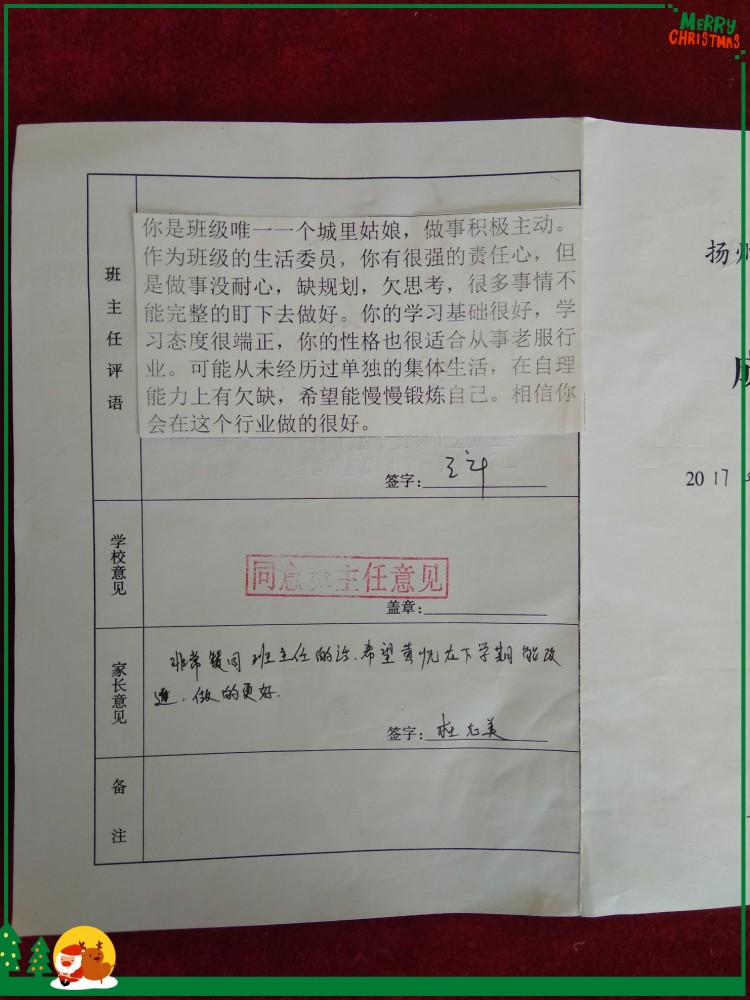 MERRY
CHRISTMAS
班主任评语
你是班级唯一一个城里姑娘，做事积极主动。
作为班级的生活委员，你有很强的责任心，但
是做事没耐心，缺规划，欠思考，很多事情不
能完整的盯下去做好。你的学习基础很好，学
习态度很端正，你的性格也很适合从事老服行
业。可能从未经历过单独的集体生活，在自理
能力上有欠缺，希望能慢慢锻炼自己。相信你
会在这个行业做的很好。
签字：
学校意见
同意班主任意见
盖章：
家长意见
非常赞同班主任的话.希望黄悦在下学期能改
进.做的更好.
签字：杜志美
备注
扬州
2017